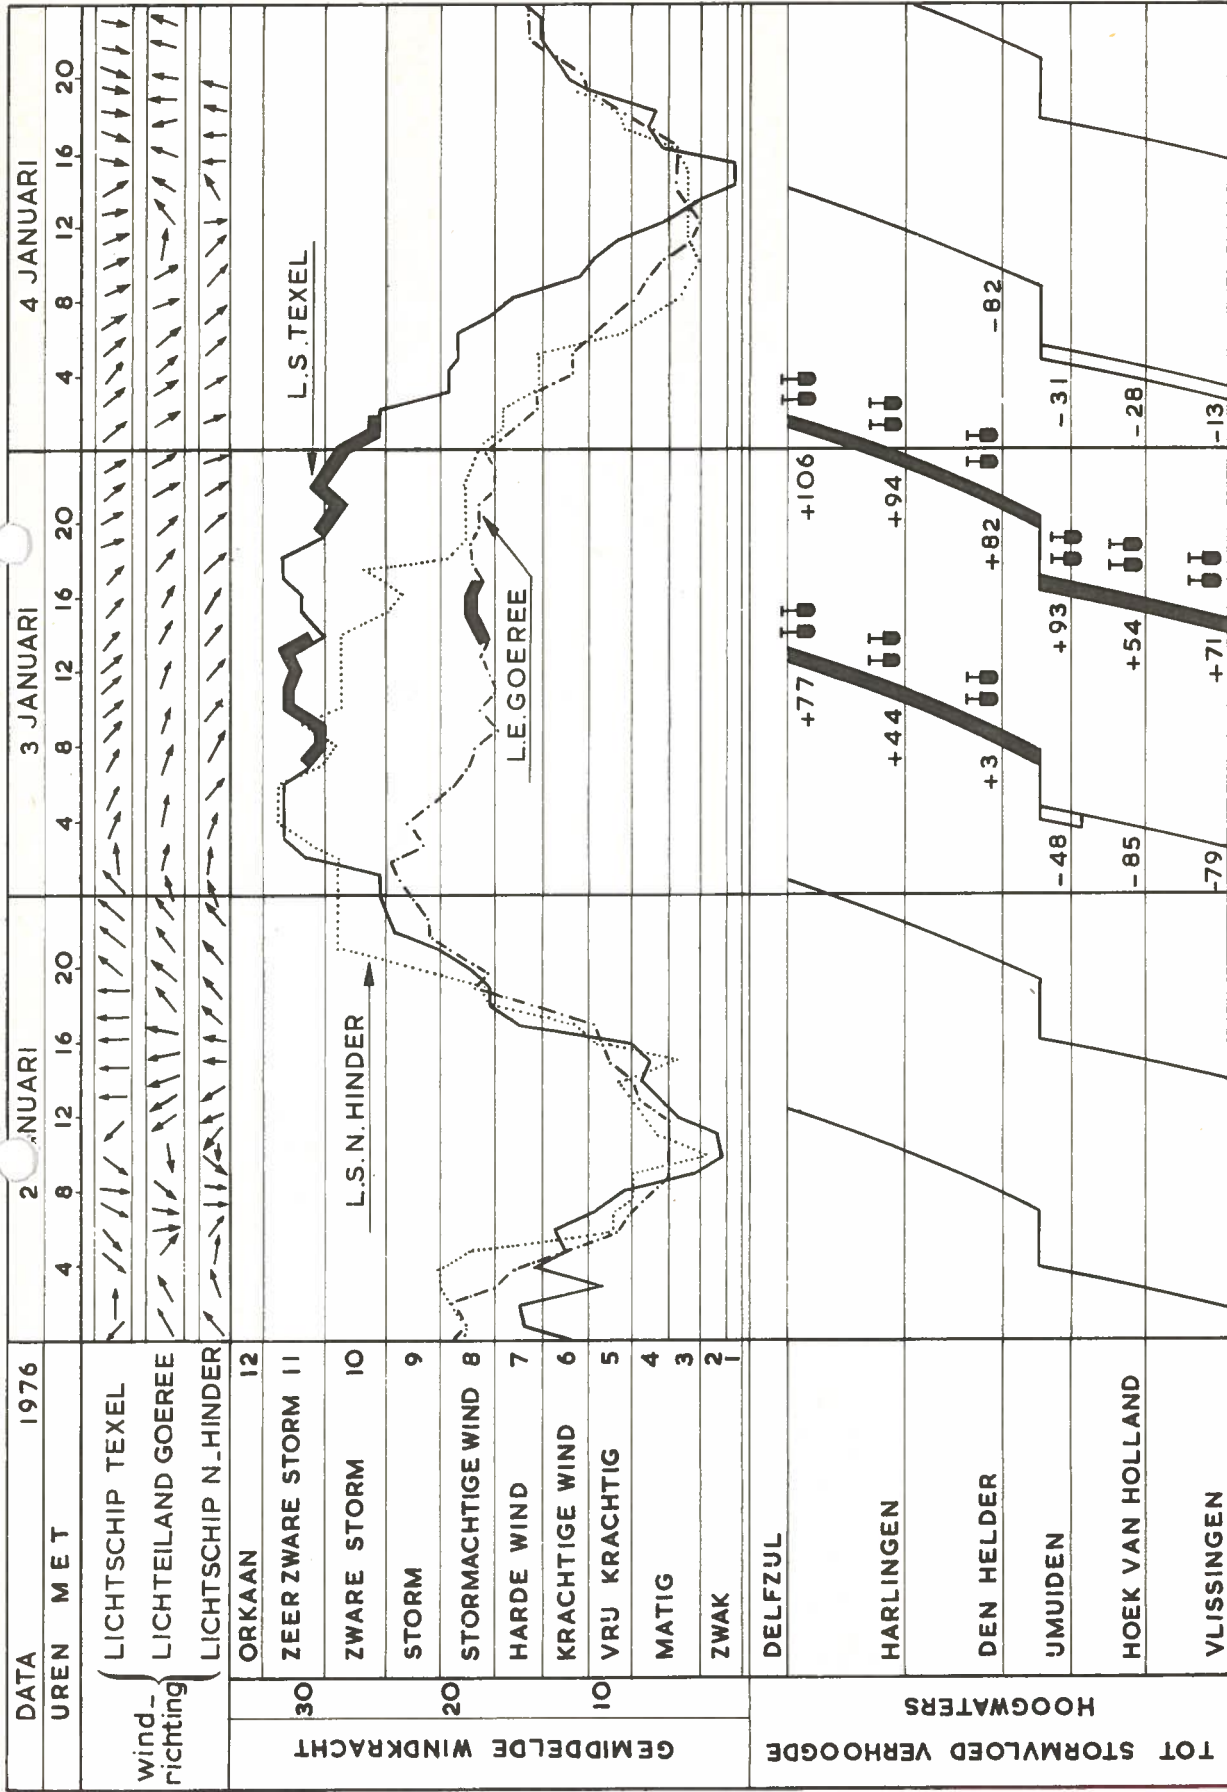 DATA 1976 2 NUARI 3 JANUARI 4 JANUARI
UREN MET 4 8 12 16 20 4 8 12 16 20 4 8 12 16 20
wind-
richting
LICHTSCHIP TEXEL
LICHTEILAND GOEREE
LICHTSCHIP N.HINDER
GEMIDDELDE WINDKRACHT
30
20
10
ORKAAN 12
ZEER ZWARE STORM 11
ZWARE STORM 10
STORM 9
STORMACHTIGE WIND 8
HARDE WIND 7
KRACHTIGE WIND 6
VRIJ KRACHTIG 5
MATIG 4
3
ZWAK 2
1
L.S.N.HINDER
L.E.GOEREE
L.S.TEXEL
TOT STORMVLOED VERHOOGDE
HOOGWATERS
DELFZIJL +77 +106
HARLINGEN +44 +94
DEN HELDER +3 +82 -82
IJMUIDEN -48 +93 -31
HOEK VAN HOLLAND -85 +54 -28
VLISSINGEN -79 +71 -13